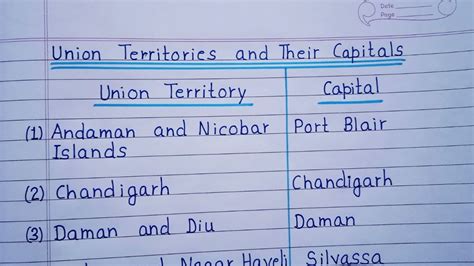 Date
Page
Union Territories and Their Capitals
Union Territory Capital
(1) Andaman and Nicobar Port Blair
Islands
(2) Chandigarh Chandigarh
(3) Daman and Diu Daman
Nagar Haveli Silvassa